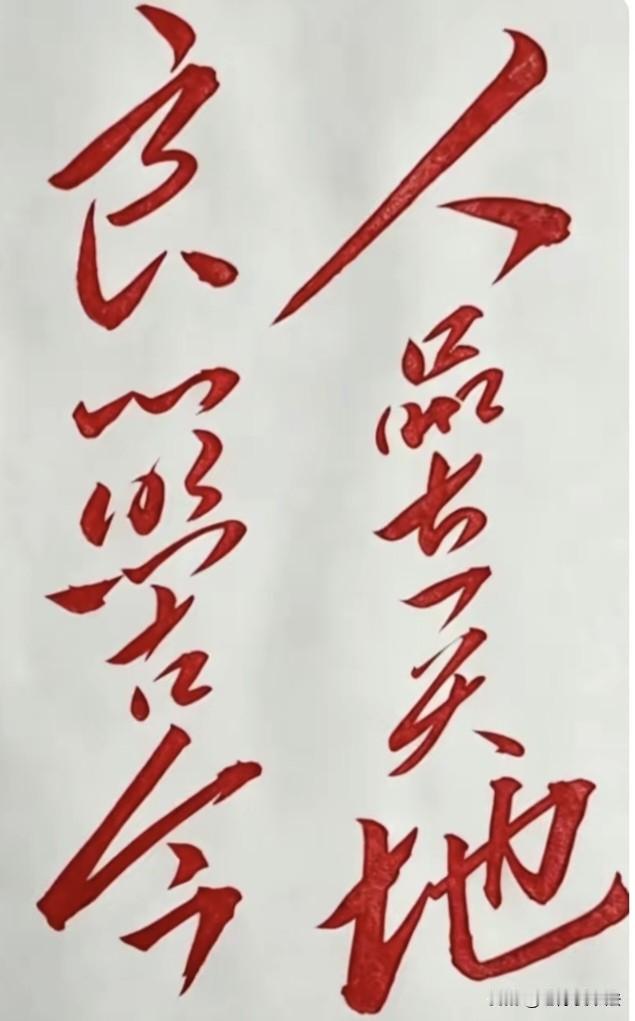 人品立天地
良心照古今